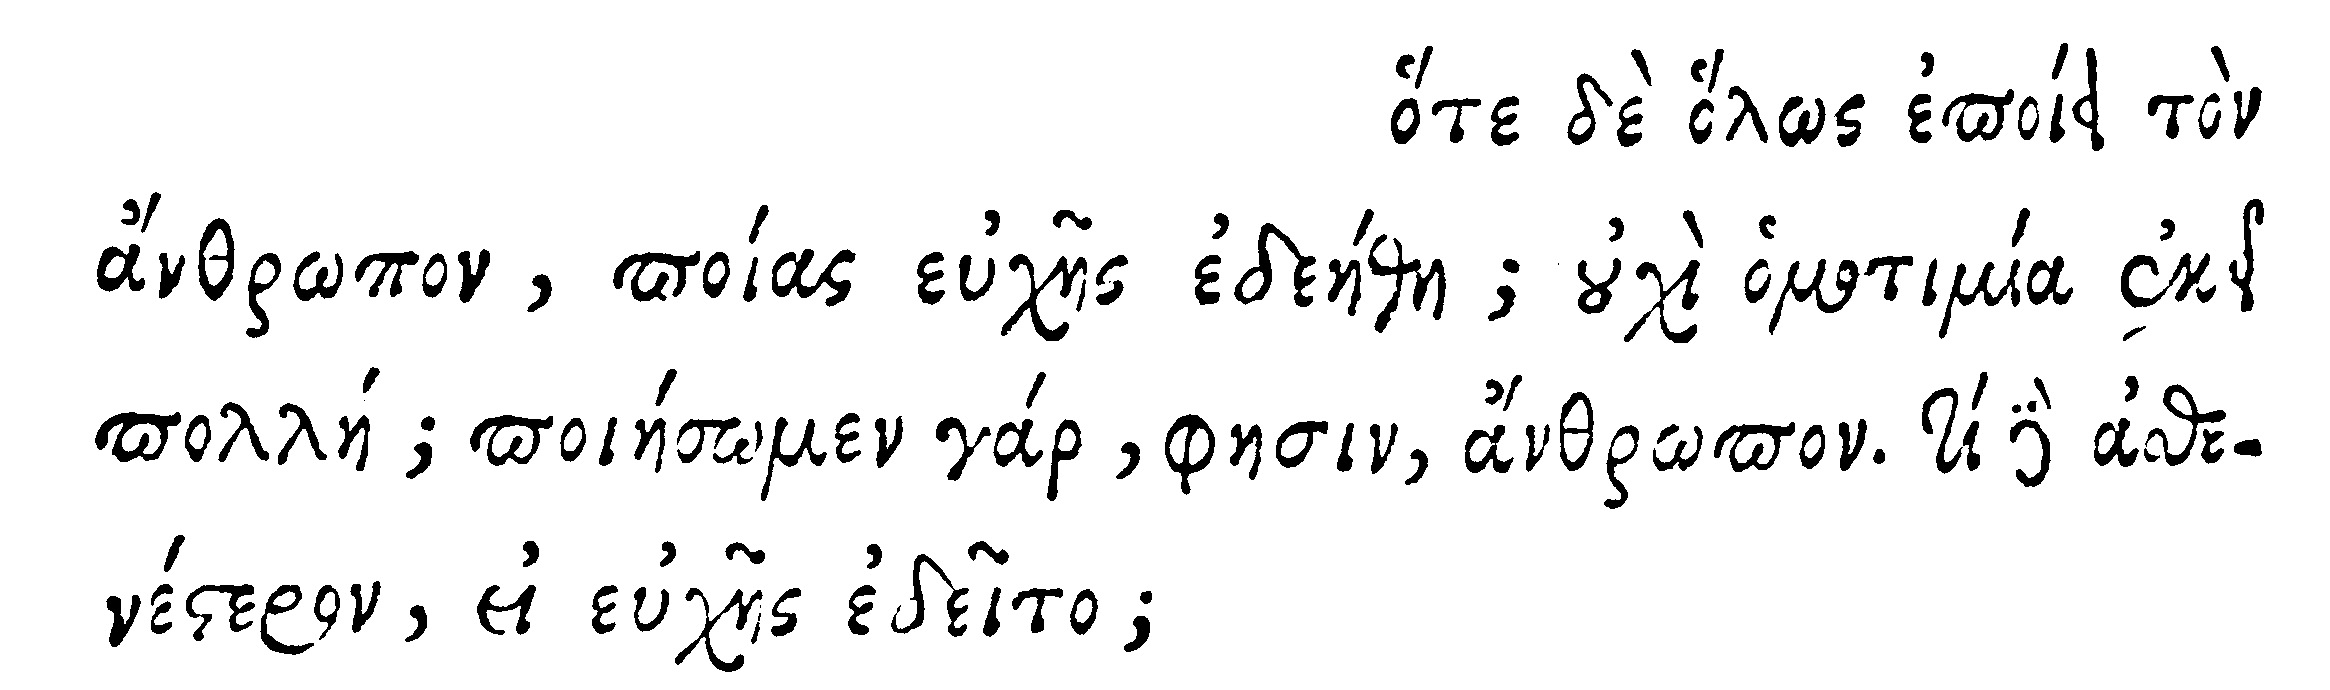 ὅτε δὲ ὅλως ἐποίει τὸν
ἄνθρωπον, ποίας εὐχῆς ἐδεήθη; οὐχὶ ὁμοτιμία ἐκεῖ
πολλή; ποιήσωμεν γάρ, φησιν, ἄνθρωπον. τί δὲ ἀσθε-
νέστερον, εἰ εὐχῆς ἐδεῖτο;